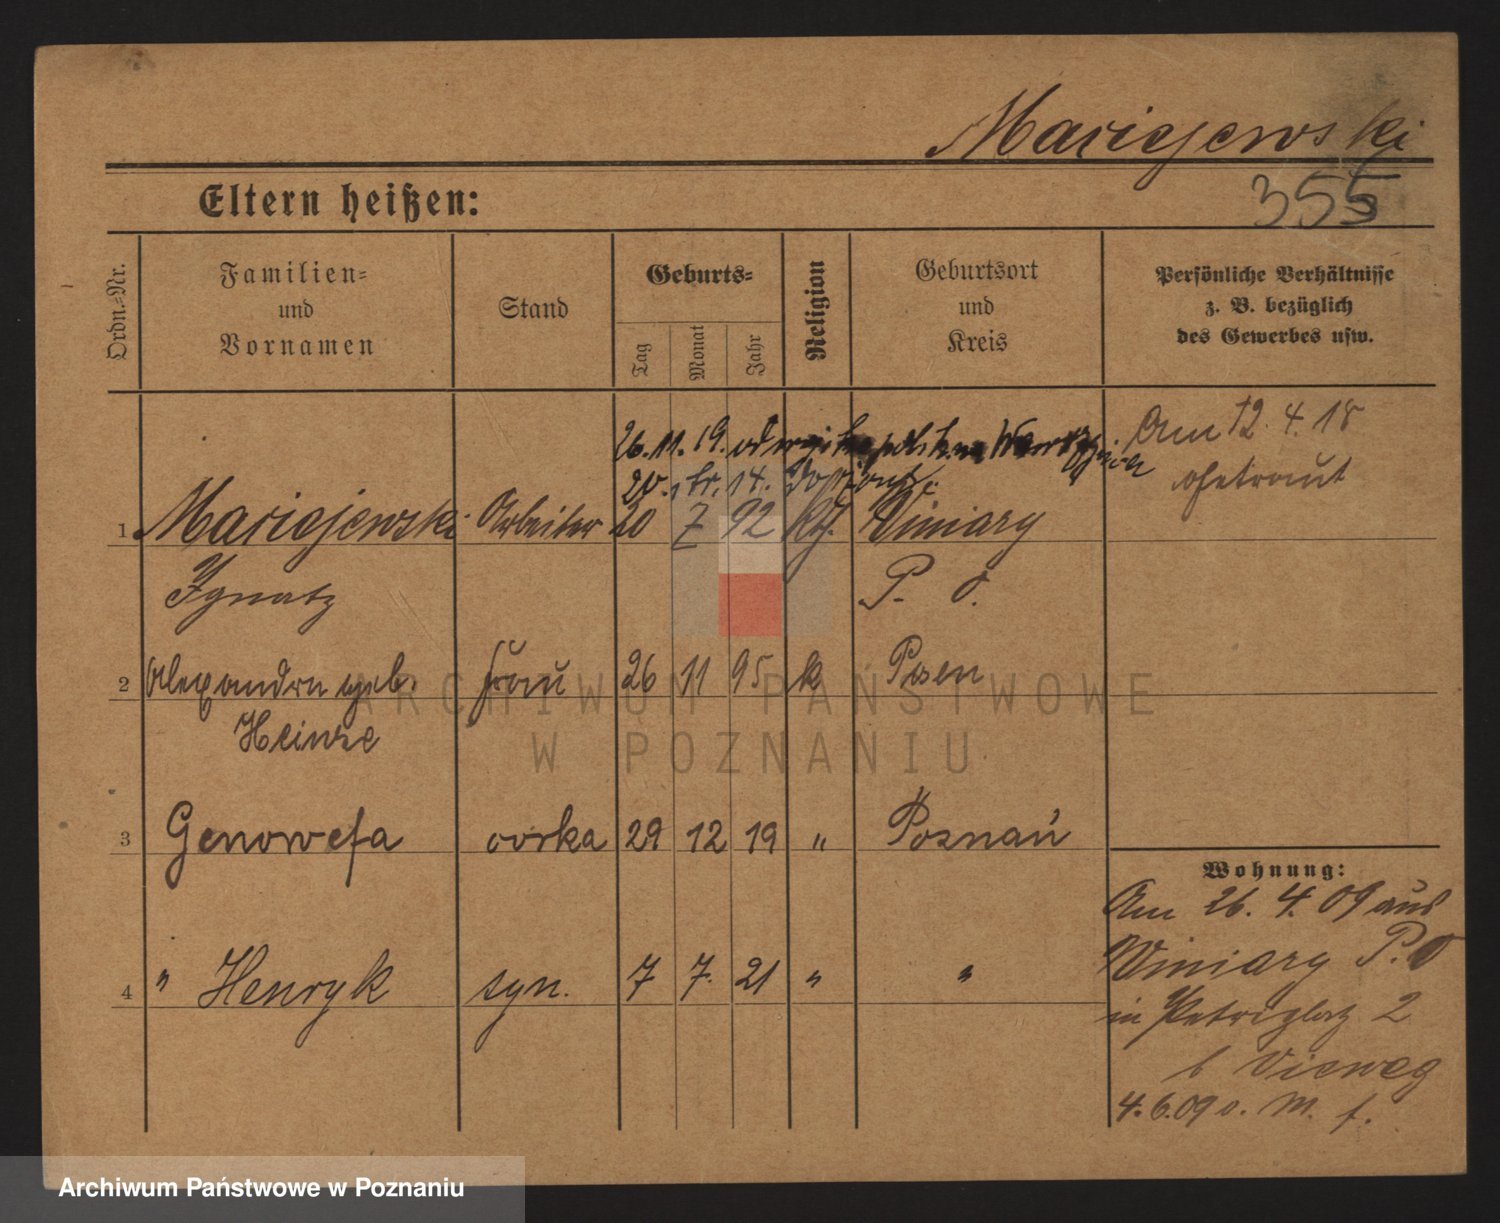 Maciejewski
355
Eltern heißen:
Ordn.-Nr.
Familien-
und
Vornamen
Stand
Geburts-
Tag
Monat
Jahr
Religion
Geburtsort
und
Kreis
Persönliche Verhältnisse
z. B. bezüglich
des Gewerbes usw.
26.11.19. od
Am 12.4.18
getraut
1 Maciejewski Arbeiter 20 7 92 kth. Winiary
Ignatz P. O.
2 Alexandra geb. Frau 26 11 95 k Posen
Heinze
3 Genowefa córka 29 12 19 " Poznań
4 " Henryk syn. 7 7. 21 " "
Wohnung:
Am 26. 4. 09 aus
Winiary P. O
in Petriplatz 2
b Vieweg
4.6.09 v. M. f.
ARCHIWUM PAŃSTWOWE
W POZNANIU
Archiwum Państwowe w Poznaniu